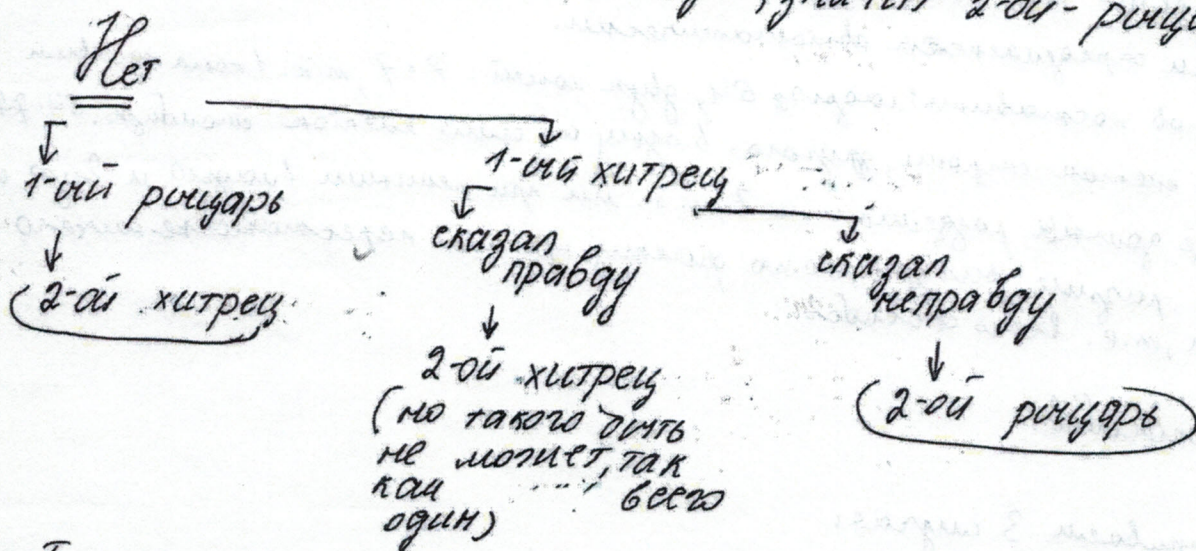 2-ой - рыца
Нет
1-ый рыцарь
2-ой хитрец
1-ый хитрец
сказал
правду
2-ой хитрец
(но такого быть
не может, так
как всего
один)
сказал
неправду
2-ой рыцарь